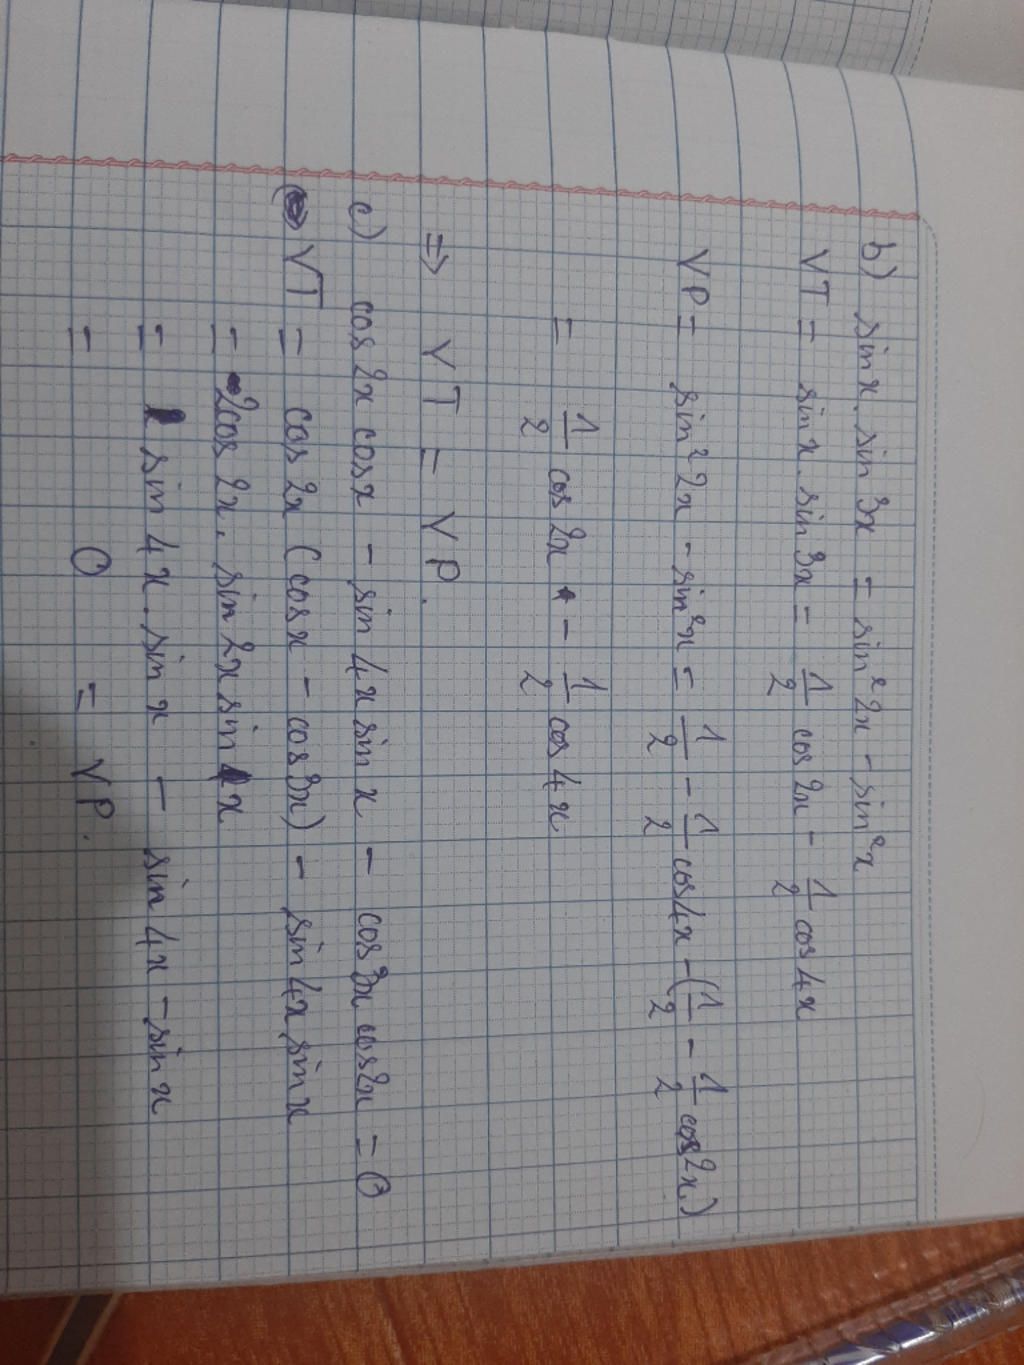 b) sinx.sin 3x = sin²2x - sin²x
VT = sinx.sin3x = 1/2 cos 2x - 1/2 cos4x
VP = sin²2x - sin²x = 1/2 - 1/2 cos4x - (1/2 - 1/2 cos2x)
= 1/2 cos 2x - 1/2 cos 4x
=> VT = VP.
c) cos 2x cosx - sin 4x sin x - cos 3x cos2x = 0
VT = cos 2x (cosx - cos3x) - sin 4x sin x
= 2cos 2x. sin 2x sin x
= sin 4x. sin x - sin 4x - sin x
= 0 = VP.